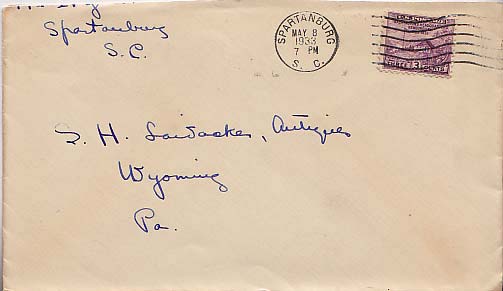 Spartanburg
S.C.
SPARTANBURG
MAY 8
1933
7 PM
S. C.
3
S. H. Laidacker, Antiques
Wyoming
Pa.